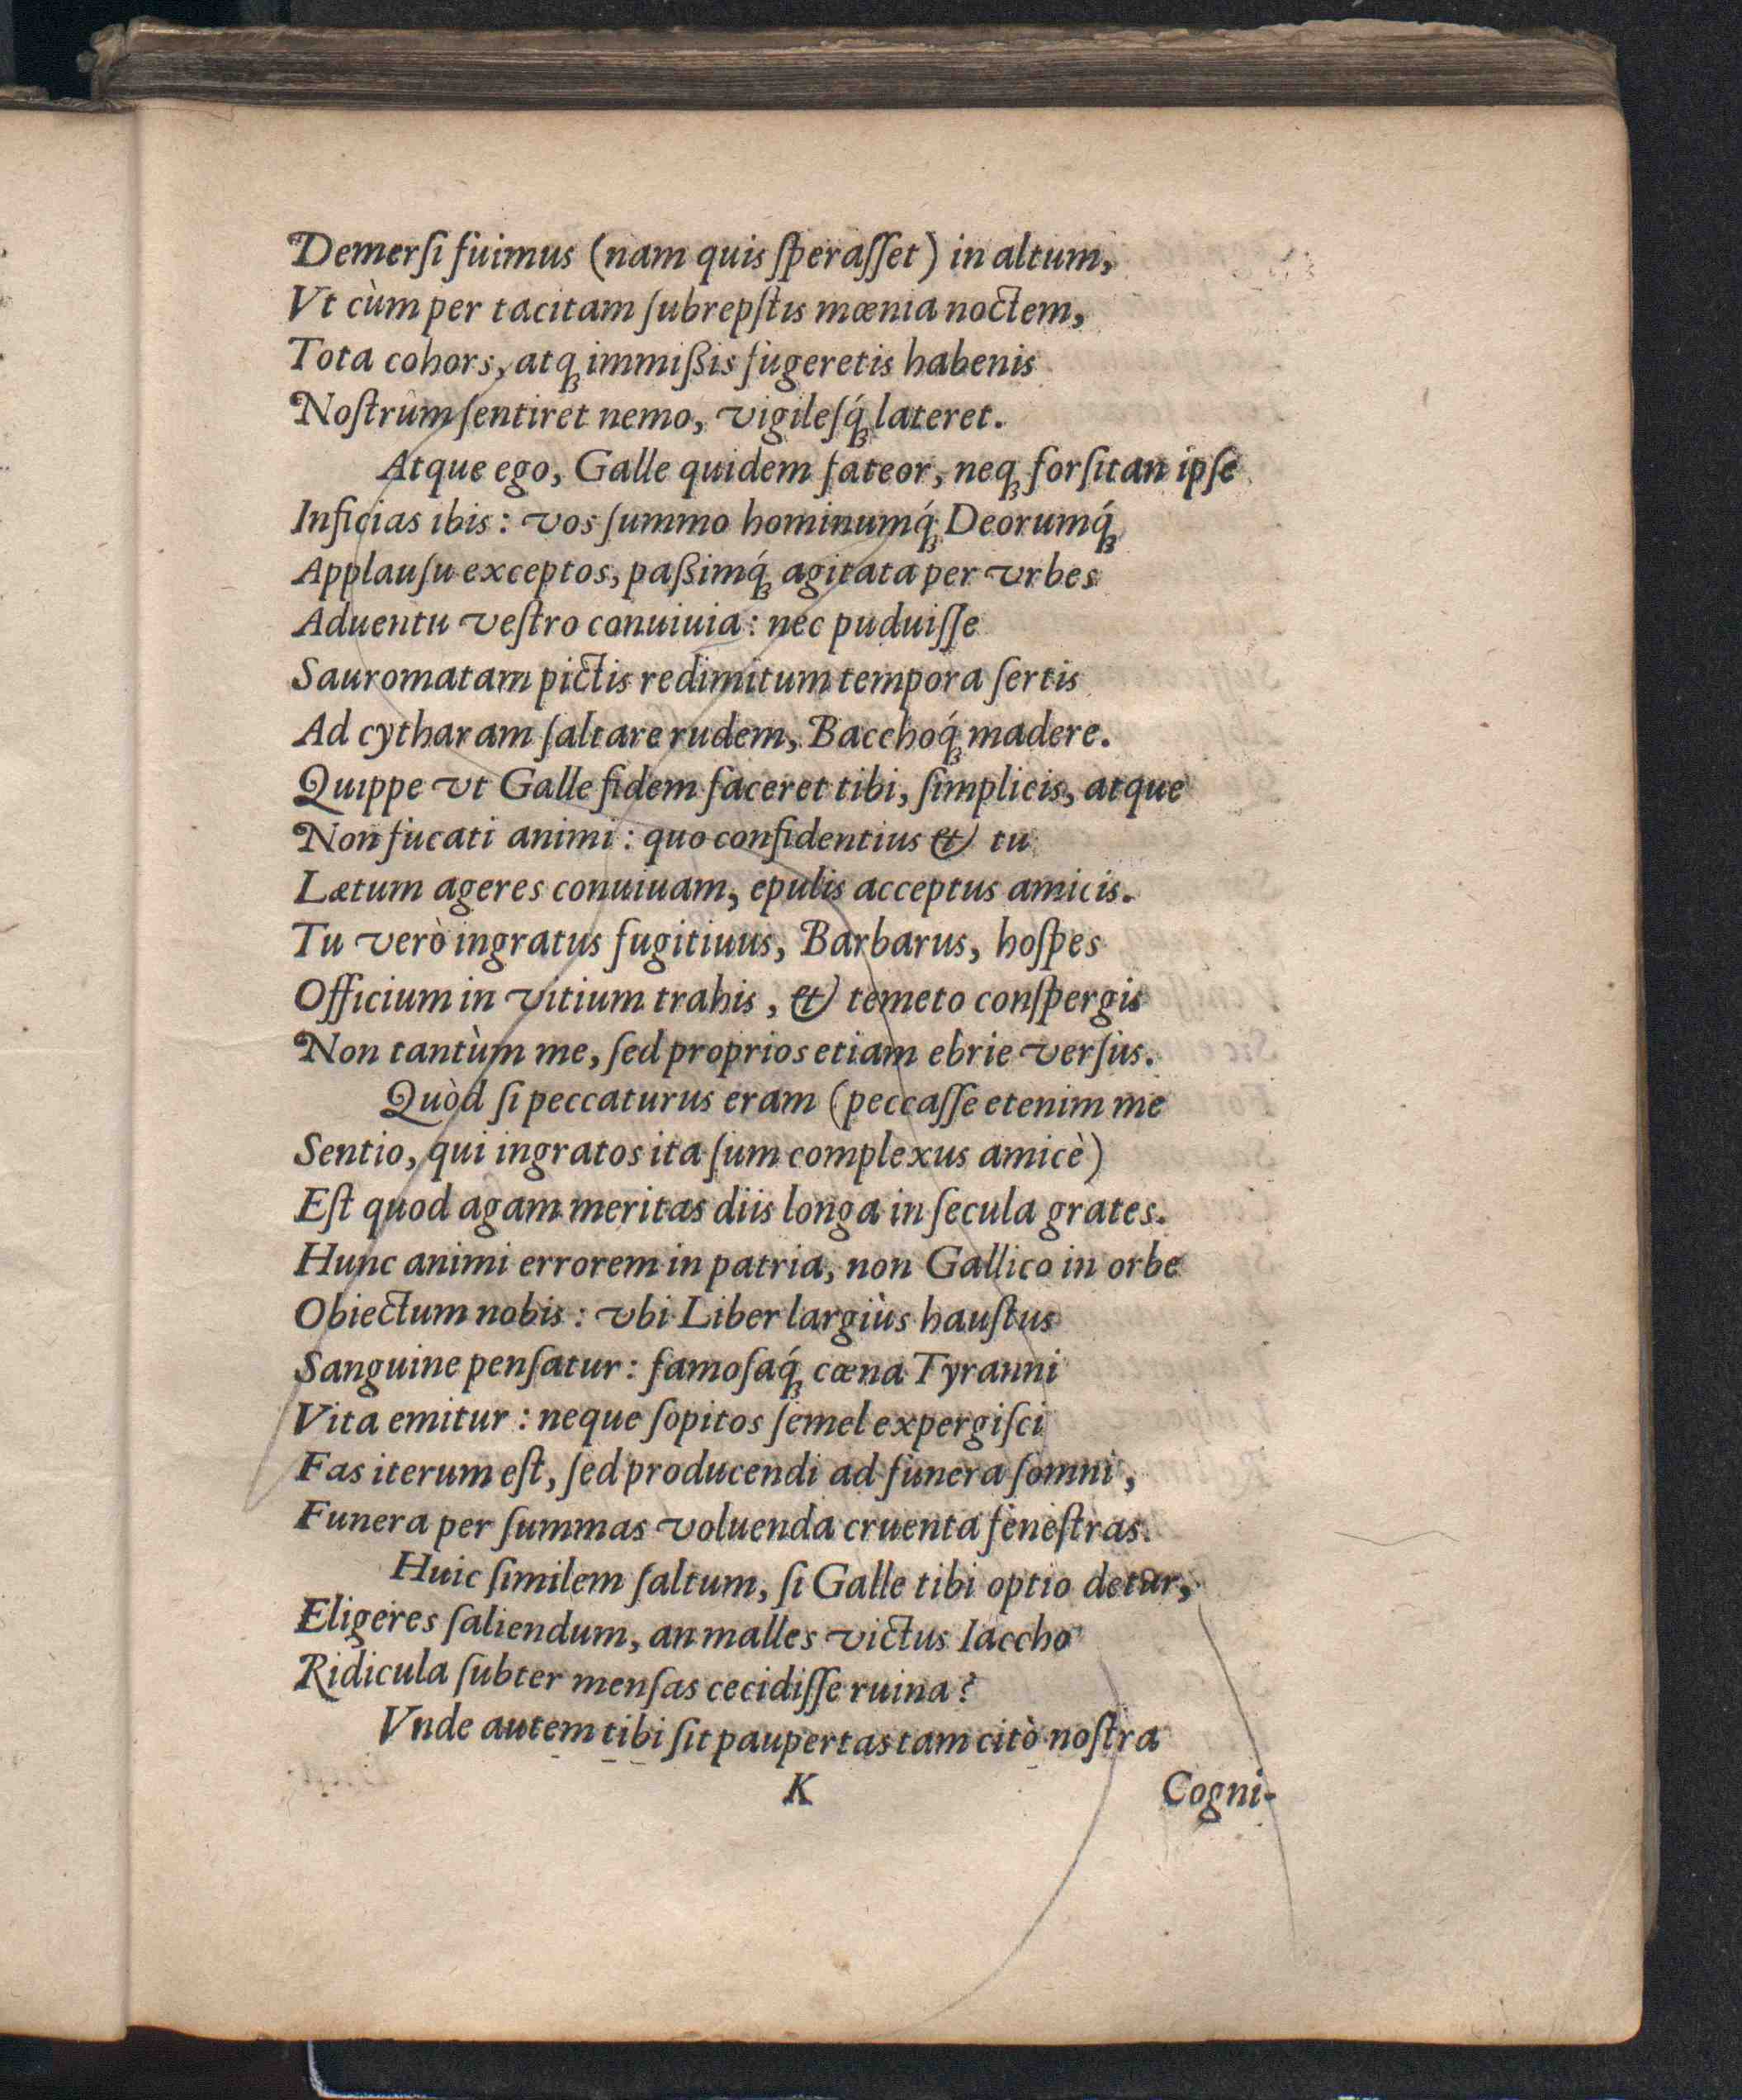 Demerſi fuimus (nam quis ſperaſſet) in altum,
Vt cùm per tacitam ſubrepſtis mœnia noctem,
Tota cohors, atq́; immißis fugeretis habenis
Noſtrûm ſentiret nemo, vigileſq́; lateret.
Atque ego, Galle quidem fateor, neq; forſitan ipſe
Inficias ibis: vos ſummo hominumq́; Deorumq́;
Applauſu exceptos, paßimq́; agitata per vrbes
Aduentu veſtro conuiuia: nec puduiſſe
Sauromatam pictis redimitum tempora ſertis
Ad cytharam ſaltare rudem, Bacchoq́; madere.
Quippe vt Galle fidem faceret tibi, ſimplicis, atque
Non fucati animi: quo confidentius & tu
Lætum ageres conuiuam, epulis acceptus amicis.
Tu verò ingratus fugitiuus, Barbarus, hoſpes
Officium in vitium trahis, & temeto conſpergis
Non tantùm me, ſed proprios etiam ebrie verſus.
Quòd ſi peccaturus eram (peccaſſe etenim me
Sentio, qui ingratos ita ſum complexus amicè)
Eſt quod agam meritas diis longa in ſecula grates.
Hunc animi errorem in patria, non Gallico in orbe
Obiectum nobis: vbi Liber largiùs hauſtus
Sanguine penſatur: famoſaq́; cœna Tyranni
Vita emitur: neque ſopitos ſemel expergiſci
Fas iterum eſt, ſed producendi ad funera ſomni,
Funera per ſummas voluenda cruenta feneſtras.
Huic ſimilem ſaltum, ſi Galle tibi optio detur,
Eligeres ſaliendum, an malles victus Iaccho
Ridicula ſubter menſas cecidiſſe ruina?
Vnde autem tibi ſit paupertas tam citò noſtra
K
Cogni-